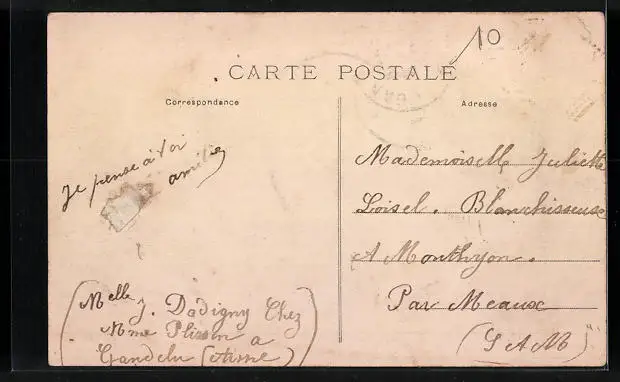 10
CARTE POSTALE
Correspondance
Adresse
Je pense à toi
amitié
Mademoiselle Juliette
Loisel. Blanchisseuse
A Monthyon.
Par Meaux
(S A M)
(Melle J. Dadigny Chez
Mme a
Gandelu (Aisne)